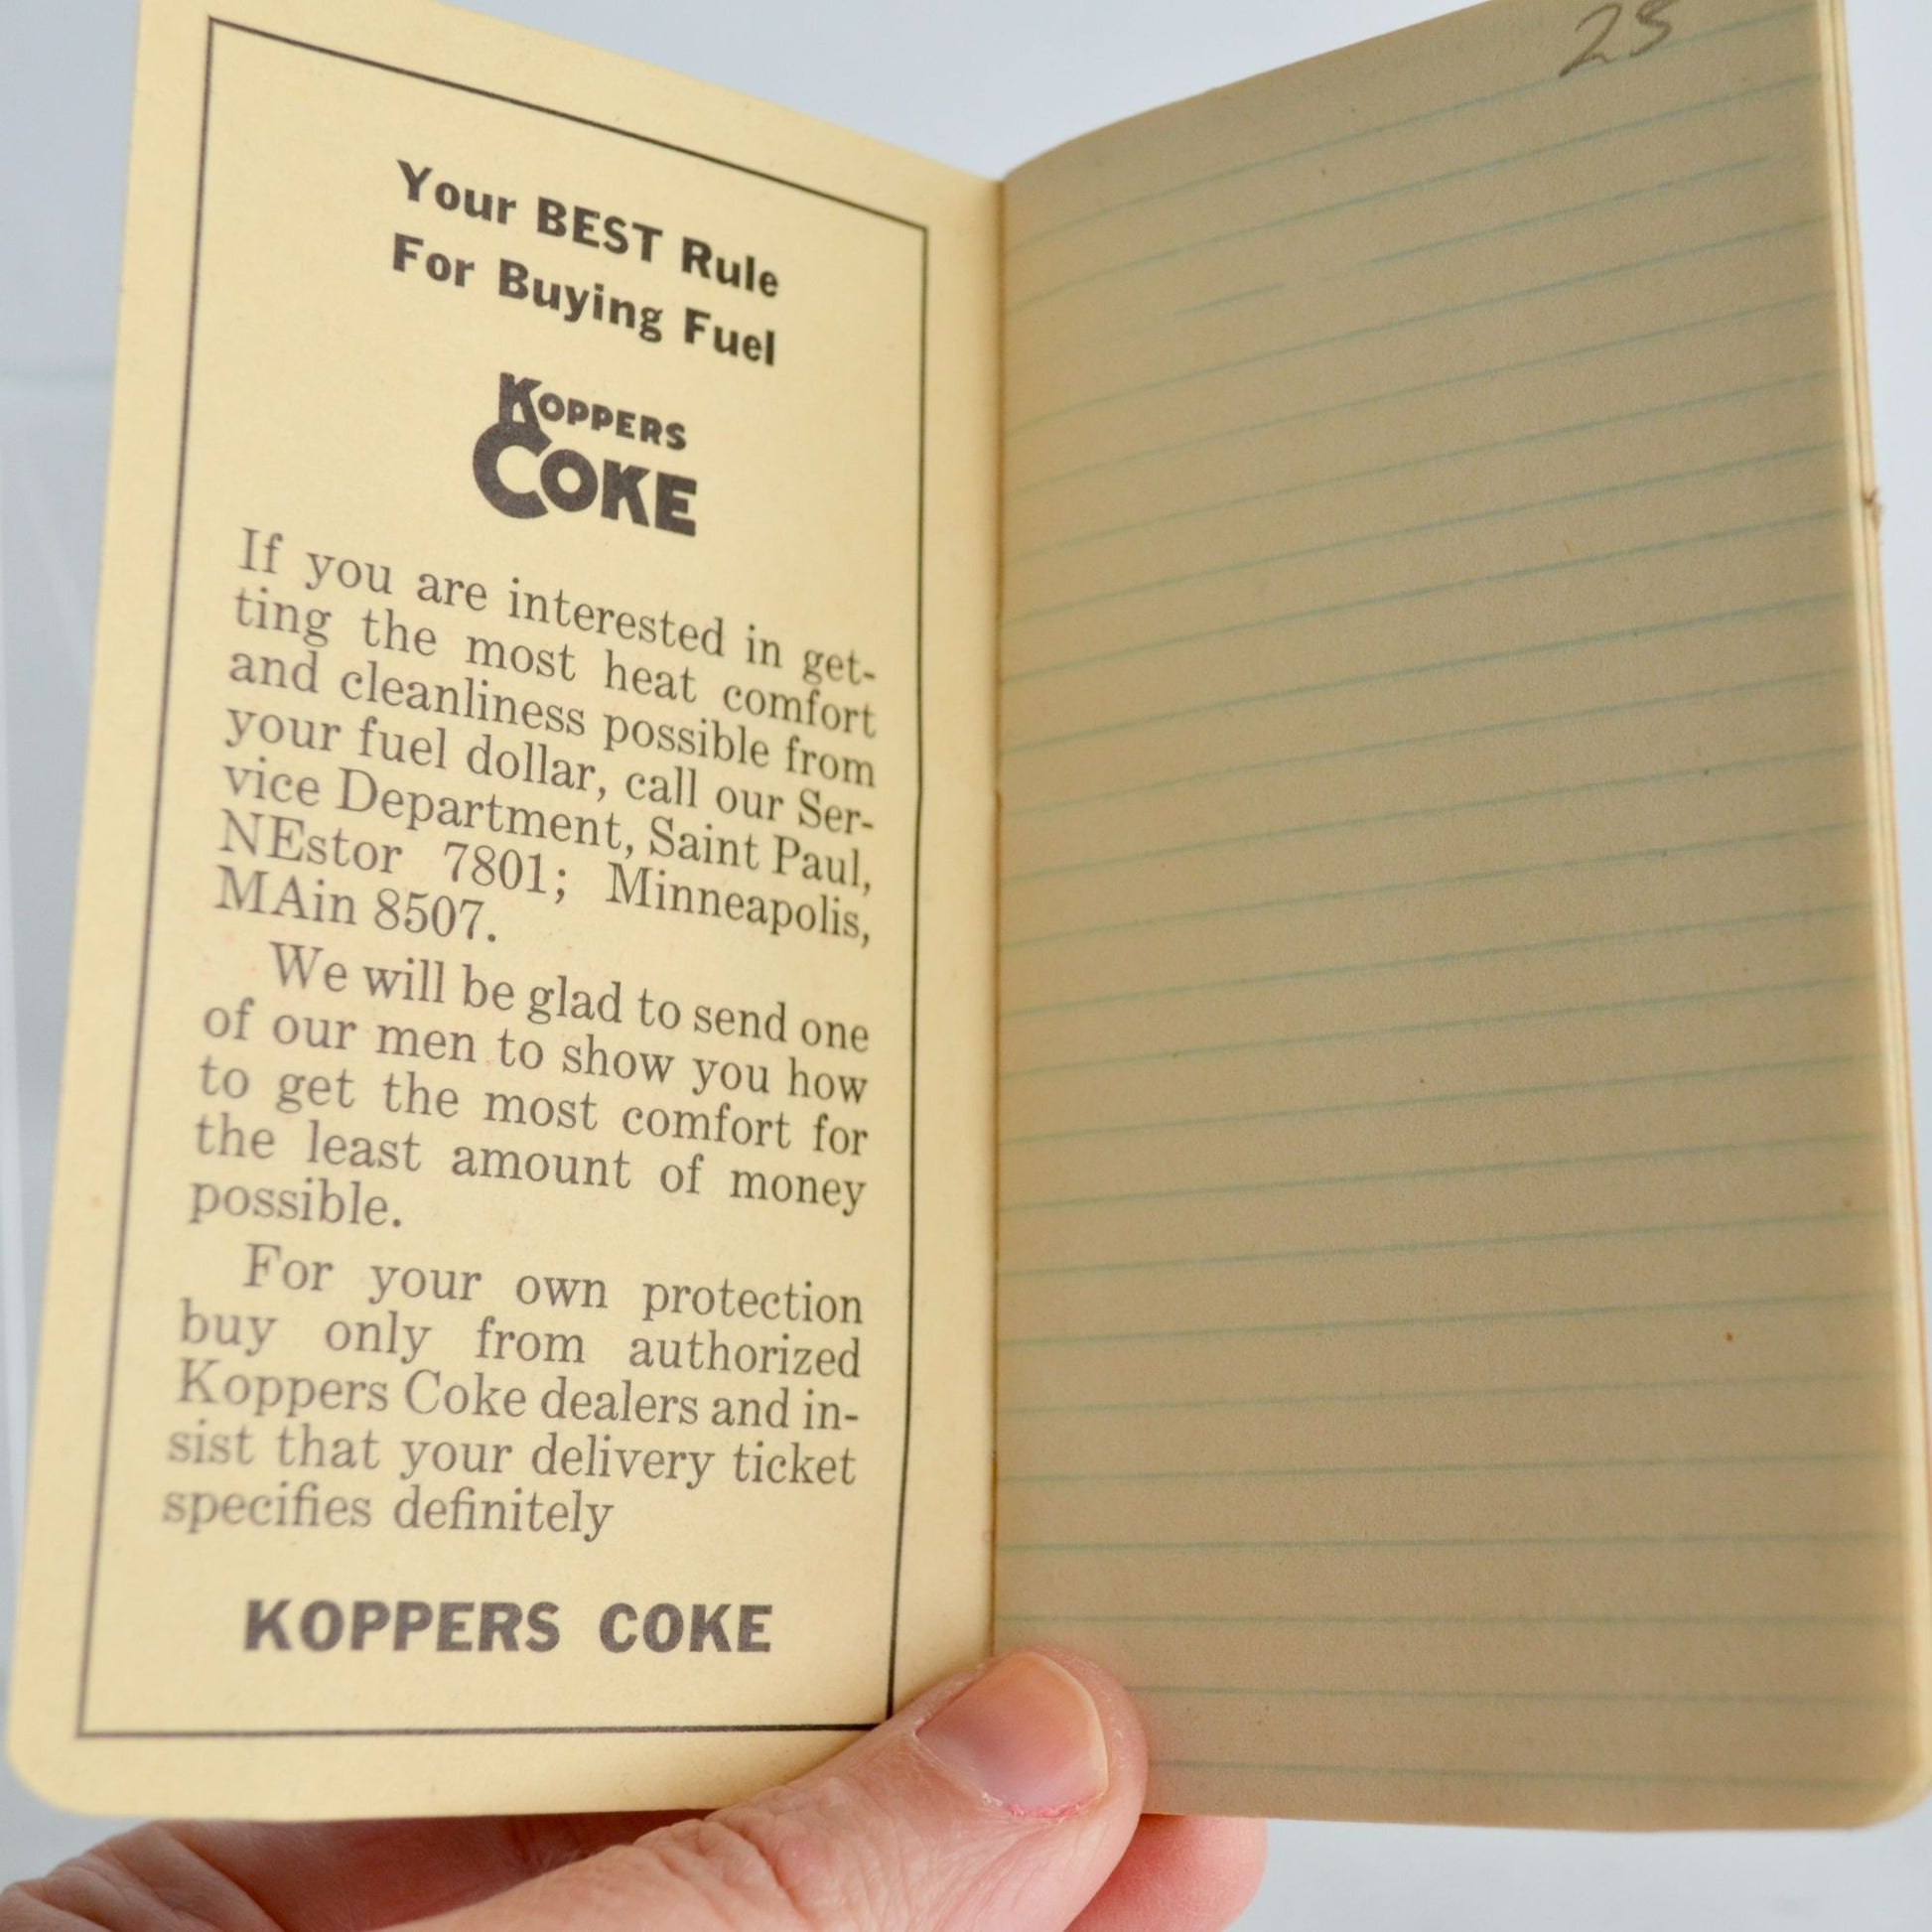 Your BEST Rule
For Buying Fuel
KOPPERS
COKE
If you are interested in get-
ting the most heat comfort
and cleanliness possible from
your fuel dollar, call our Ser-
vice Department, Saint Paul,
NEstor 7801; Minneapolis,
MAin 8507.
We will be glad to send one
of our men to show you how
to get the most comfort for
the least amount of money
possible.
For your own protection
buy only from authorized
Koppers Coke dealers and in-
sist that your delivery ticket
specifies definitely
KOPPERS COKE
25